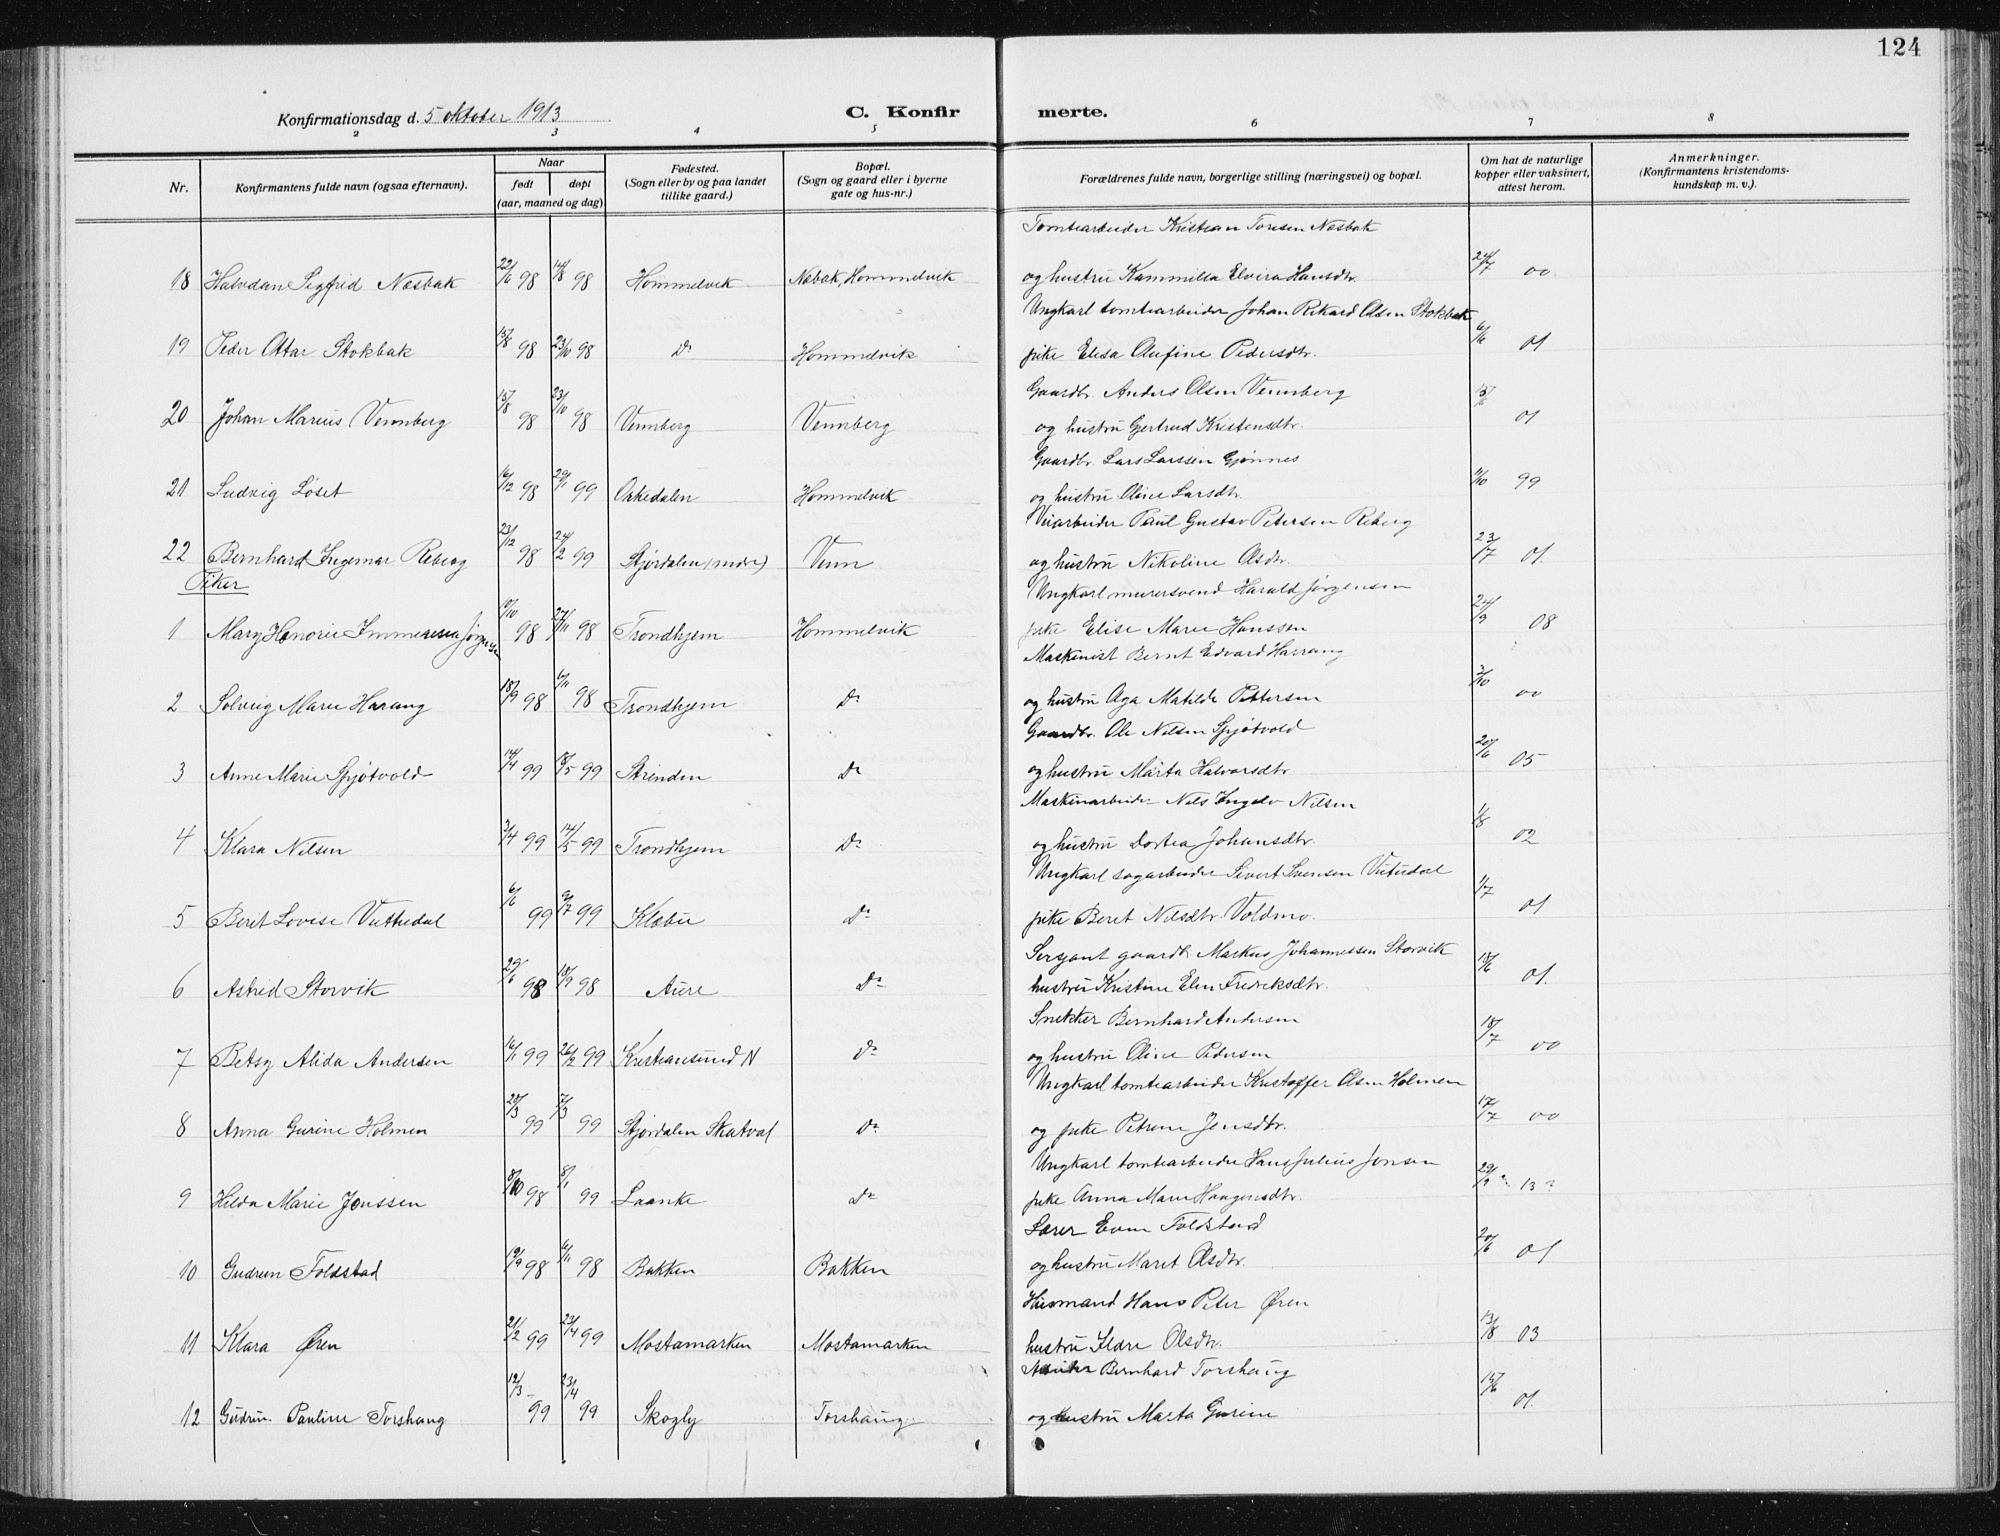 124
Konfirmationsdag d. 5 oktober 1913
C. Konfirmerte.
2 3 4 5 6 7 8
Nr.
Konfirmantens fulde navn (ogsaa efternavn).
Naar
født døpt
(aar, maaned og dag)
Fødested.
(Sogn eller by og paa landet
tillike gaard.)
Bopæl.
(Sogn og gaard eller i byerne
gate og hus-nr.)
Forældrenes fulde navn, borgerlige stilling (næringsvei) og bopæl.
Om hat de naturlige
kopper eller vaksinert,
attest herom.
Anmerkninger.
(Konfirmantens kristendoms-
kundskap m. v.).
Tomtearbeider Kristian Toresen Næsbak
18 Halvdan Sigfrid Næsbak 22/6 98 14/8 98 Hommelvik Næbak, Hommelvik og hustru Kammilla Elvira Hansdtr. 24/7 00
Ungkarl tomtearbeider Johan Rikard Olsen Stokbak
19 Peder Ottar Stokbak 15/8 98 23/10 98 Do Hommelvik pike Elisa Anfine Pedersdtr. 6/6 01
Gaardbr. Anders Olsen Vennberg
20 Johan Marius Vennberg 15/8 98 23/10 98 Vennberg Vennberg og hustru Gjertrud Kristensdtr. 01
Gaardbr. Lars Larssen Gjønnes
21 Ludvig Løset 16/12 98 29/1 99 Orkedalen Hommelvik og hustru Oline Larsdtr. 11/10 99
Veiarbeider Paul Gustav Petersen Reberg
22 Bernhard Ingemar Reberg 23/12 98 24/2 99 Stjørdalen (nedre) Venn og hustru Nikoline Olsdtr. 23/7 01.
Piker
Ungkarl murersvend Harald Jørgensen
1 Mary Honorie Immeresia Jørgensen 10/10 98 27/11 98 Trondhjem Hommelvik pike Elise Marie Hanssen 24/9 08
Maskinist Bernt Edvard Harrang
2 Solveig Marie Harang 18/9 98 6/11 98 Trondhjem Do og hustru Aga Matilde Pettersen 3/10 00
Gaardbr. Ole Nilsen Spjøtvold
3 Anne Marie Spjøtvold 14/4 99 18/5 99 Strinden Do og hustru Marta Halvorsdtr. 20/6 05
Maskinarbeider Nils Ingelv Nilsen
4 Klara Nilsen 3/4 99 14/5 99 Trondhjem Do og hustru Dortea Johansdtr. 1/8 02
Ungkarl sagarbeider Sivert Svensen Vutudal
5 Beret Lovise Vuttudal 6/6 99 9/7 99 Klæbu Do pike Beret Nilsdtr. Voldmo. 1/7 01
Sersjant gaardb. Markus Johannessen Storvik
6 Astrid Storvik 29/6 98 18/9 98 Aure Do hustru Kristine Elen Fredriksdtr. 18/6 01.
Snekker Bernhard Andersen
7 Betsy Alida Andersen 16/1 99 26/2 99 Kristiansund N Do og hustru Oline Pedersen 18/7 00
Ungkarl tomtearbeider Kristoffer Olsen Holmen
8 Anna Gurine Holmen 20/3 99 7/3 99 Stjørdalen Skatval Do og pike Petrine Jensdtr. 17/7 00
Ungkarl tomtearbeider Hans Julius Jonsen
9 Hilda Marie Jonssen 8/10 98 8/1 99 Laanke Do pike Anna Marie Haagensdtr. 29/9 13
Lærer Even Foldstad
10 Gudrun Foldstad 19/9 98 6/11 98 Bakken Bakken og hustru Maret Olsdtr. 20/6 01
Husmand Hans Peter Øren
11 Klara Øren 21/2 99 23/4 99 Mostamarken Mostamarken hustru Ildre Olsdtr. 13/8 03
Bernhard Torshaug
12 Gudrun Pauline Torshaug 12/3 99 23/4 99 Skogly Torshaug og hustru Marta Gurine 15/6 01.